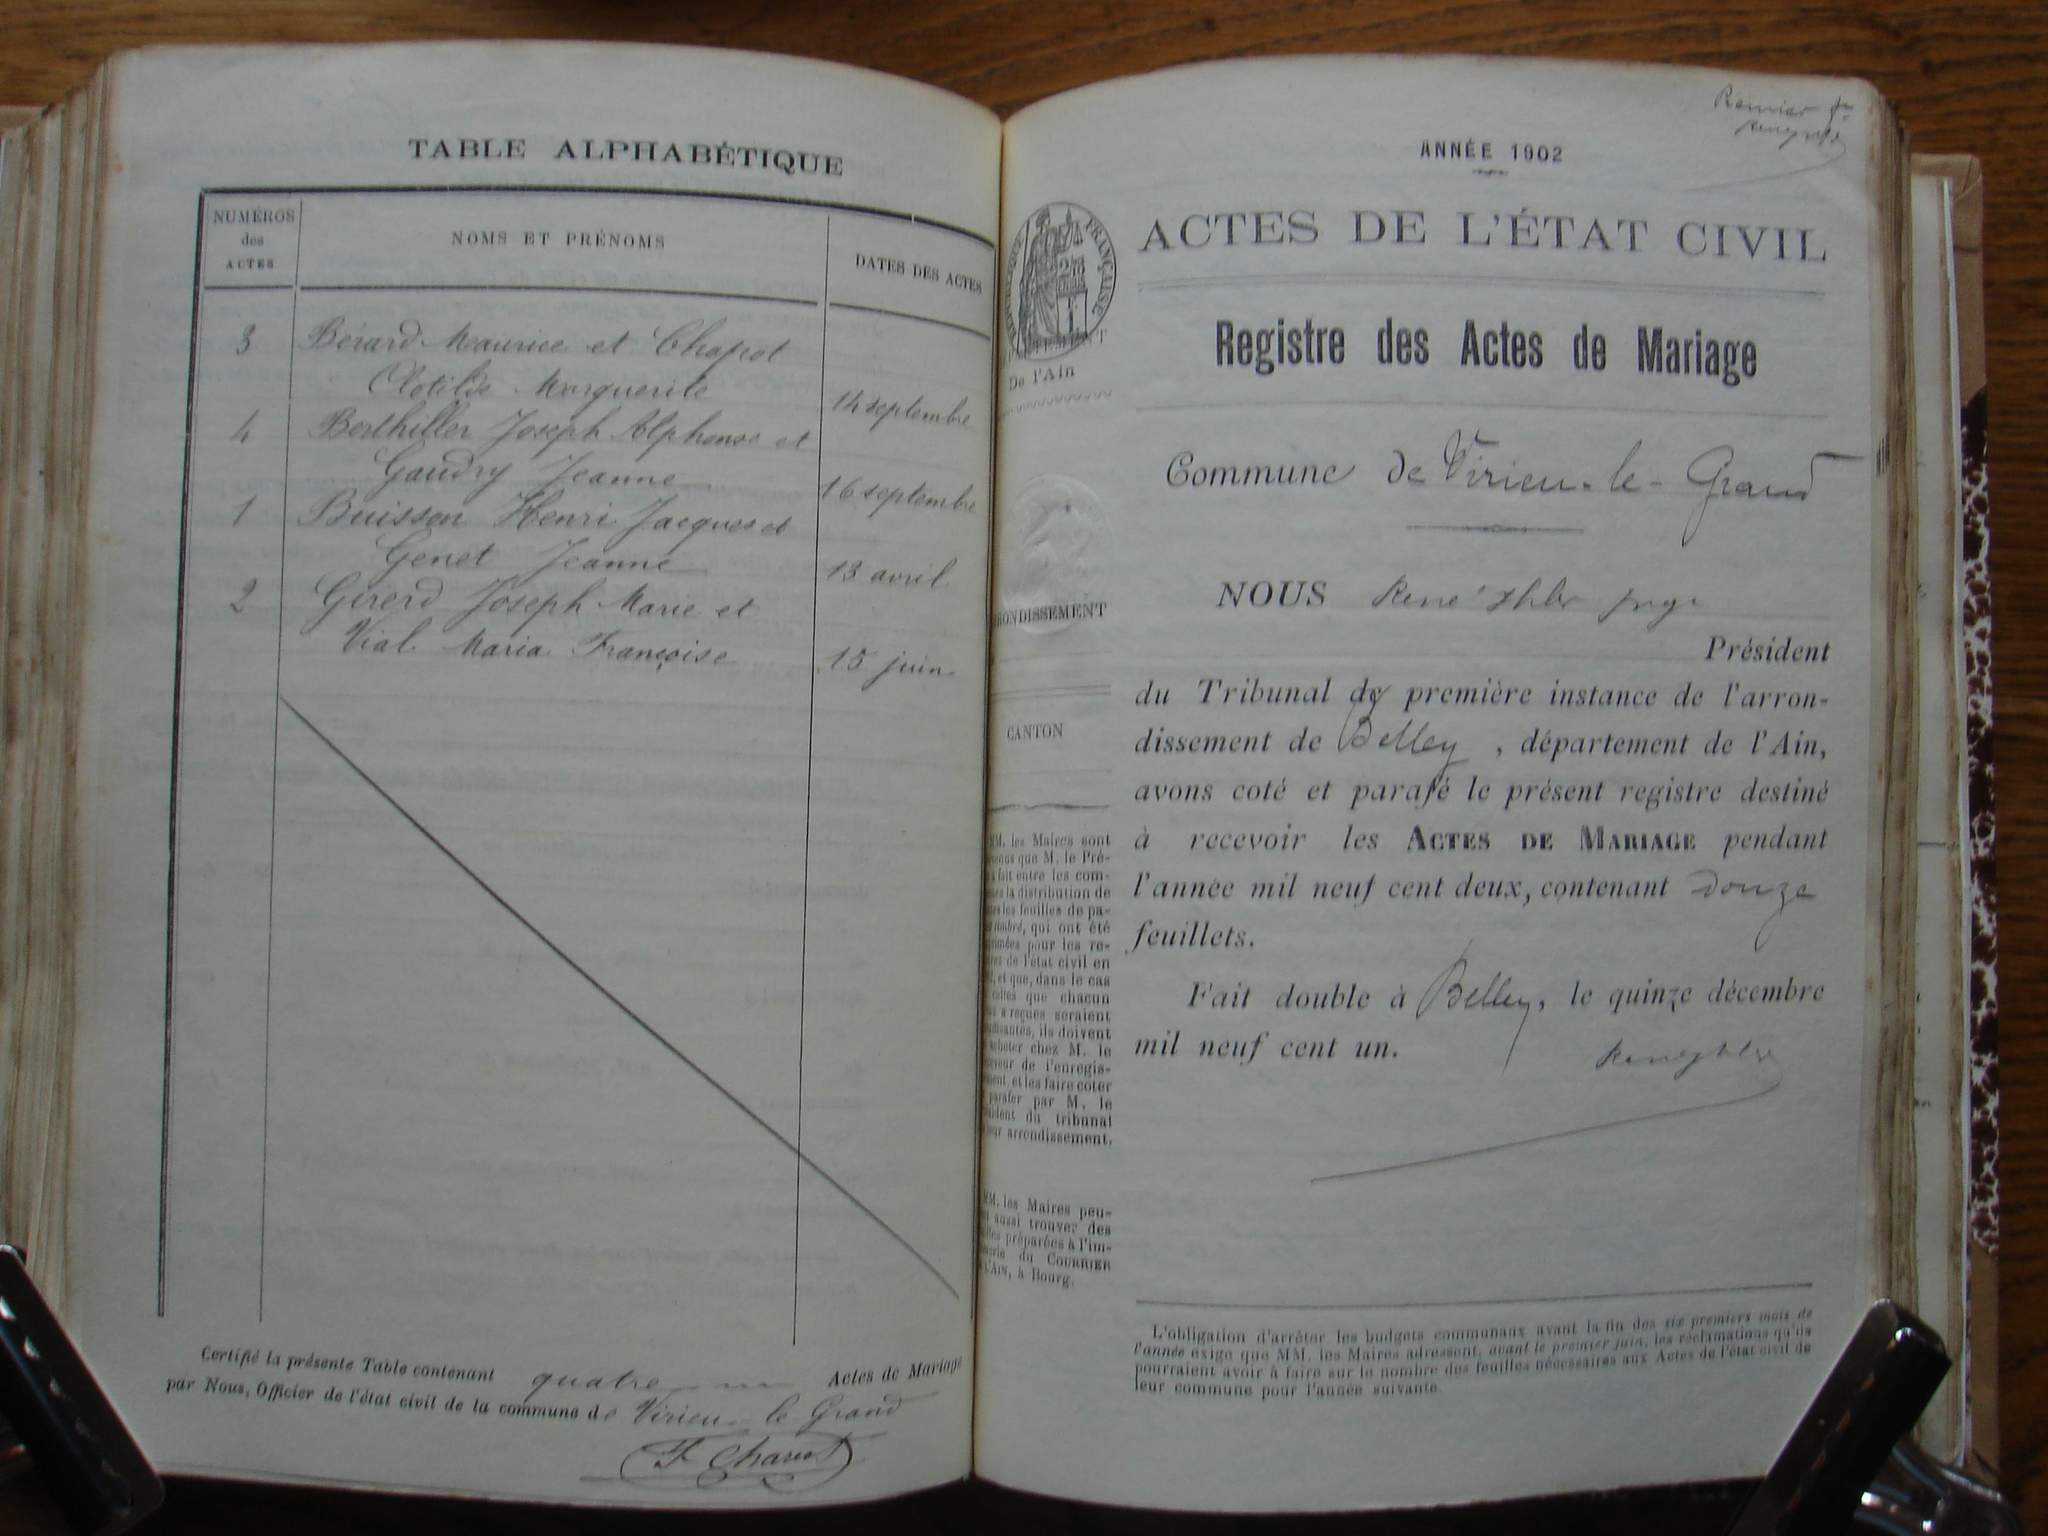 TABLE ALPHABÉTIQUE
NUMÉROS
des
ACTES
NOMS ET PRÉNOMS
DATES DES ACTES
3 Bérard Maurice et Chapot
Clotilde Marguerite 14 septembre
4 Berthiller Joseph Alphonse et
Gaudry Jeanne 16 septembre
1 Buisson Henri Jacques et
Genet Jeanne 13 avril
2 Girerd Joseph Marie et
Vial Maria Françoise 15 juin
Certifié la présente Table contenant quatre Actes de Mariage
par Nous, Officier de l'état civil de la commune de Virieu-le-Grand
Premier
ANNÉE 1902
FRANÇAISE
De l'Ain
ACTES DE L'ÉTAT CIVIL
Registre des Actes de Mariage
Commune de Virieu-le-Grand
NOUS René
Président
du Tribunal de première instance de l'arron-
dissement de Belley, département de l'Ain,
avons coté et parafé le présent registre destiné
à recevoir les ACTES DE MARIAGE pendant
l'année mil neuf cent deux, contenant douze
feuillets.
Fait double à Belley, le quinze décembre
mil neuf cent un.
CANTON
MM. les Maires sont
que M. le Pré-
fait entre les com-
la distribution de
les feuilles de pa-
timbré, qui ont été
pour les re-
de l'état civil en
et que, dans le cas
celles que chacun
a reçues seraient
ils doivent
acheter chez M. le
de l'enregis-
et les faire coter
parafer par M. le
du tribunal
leur arrondissement.
MM. les Maires peu-
aussi trouver des
préparées à l'im-
du COURRIER
L'AIN, à Bourg.
L'obligation d'arrêter les budgets communaux avant la fin des six premiers mois de
l'année exige que MM. les Maires adressent, avant le premier juin, les réclamations qu'ils
pourraient avoir à faire sur le nombre des feuilles nécessaires aux Actes de l'état civil de
leur commune pour l'année suivante.